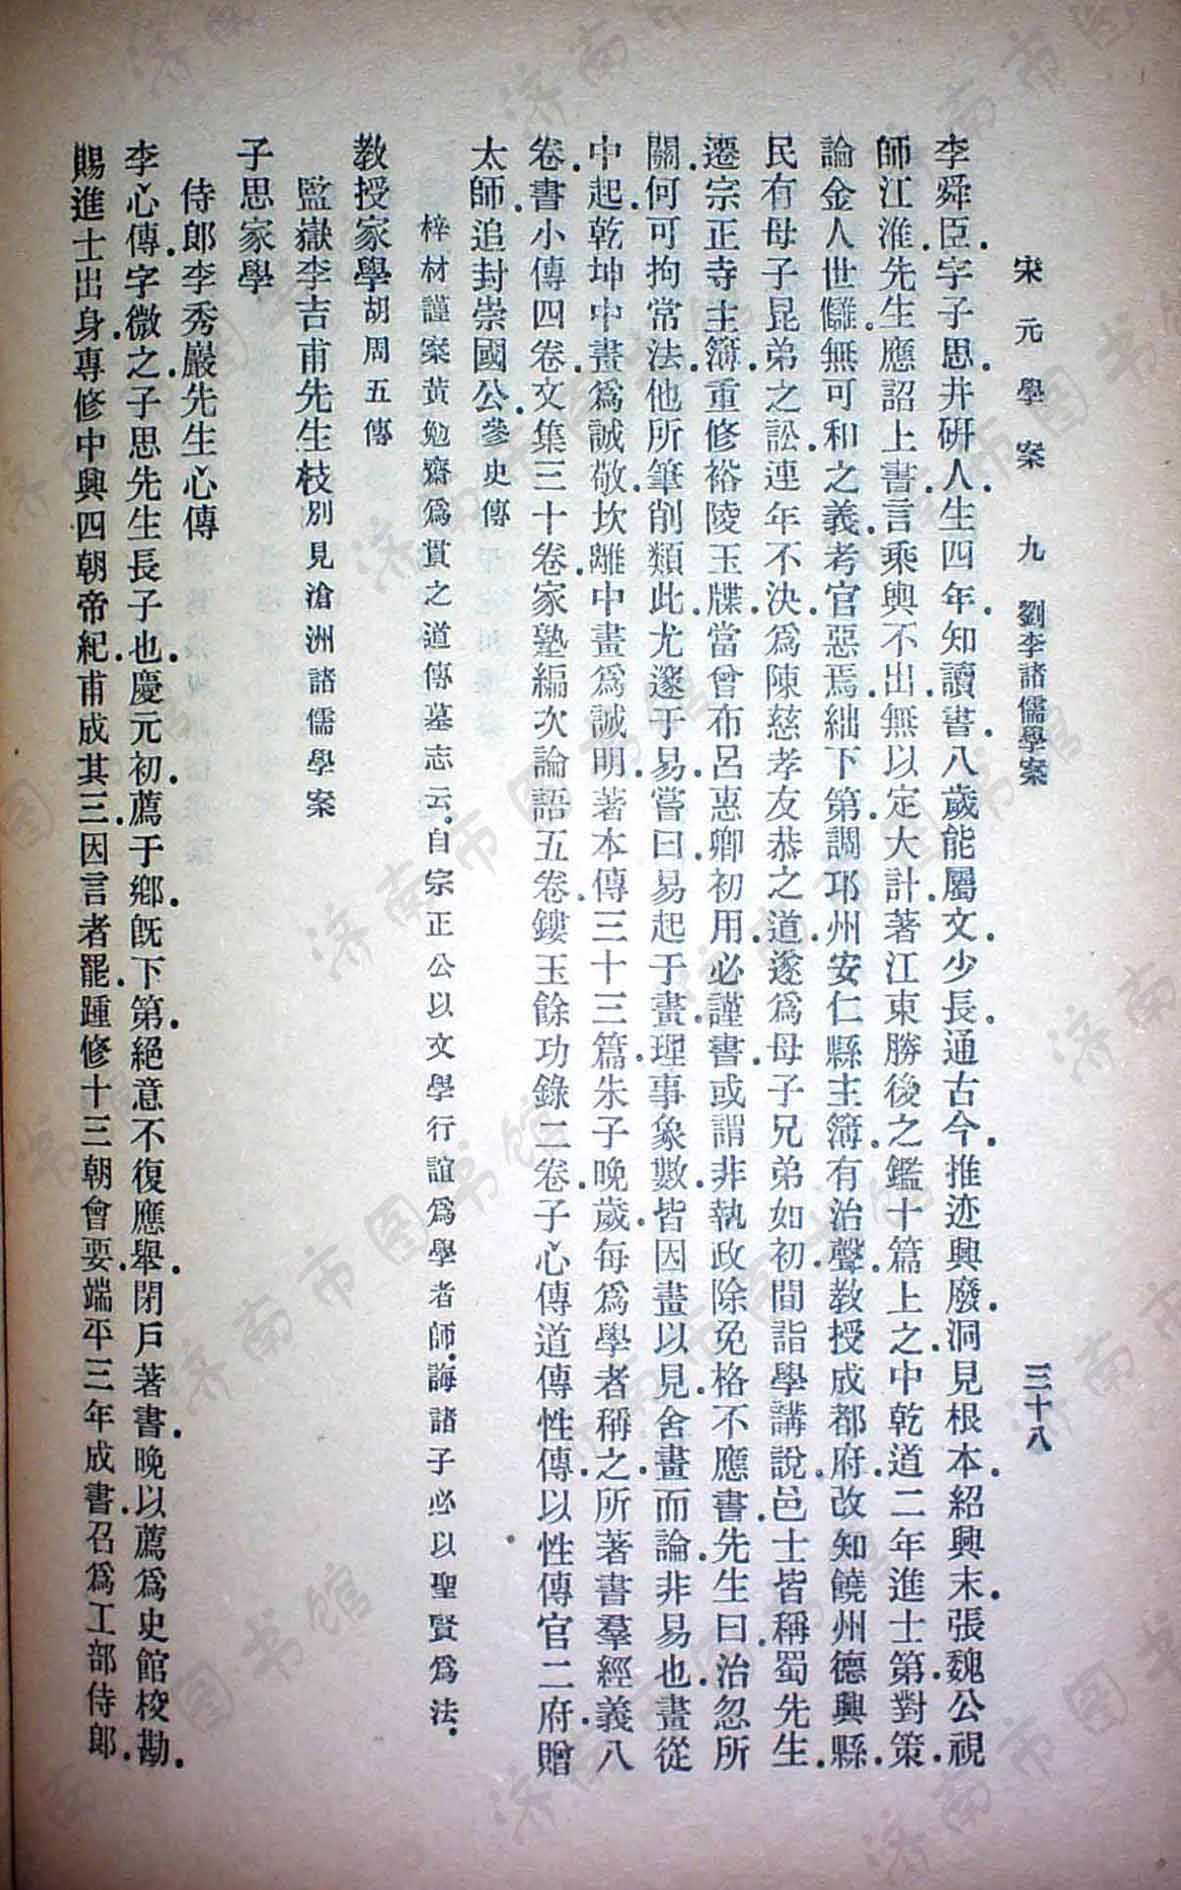 宋元學案　九　劉李諸儒學案　三十八
李舜臣.字子思.井研人.生四年.知讀書.八歲能屬文.少長.通古今.推迹興廢.洞見根本.紹興末.張魏公視
師江淮.先生應詔上書.言乘輿不出.無以定大計.著江東勝後之鑑十篇上之.中乾道二年進士第.對策.
論金人世讎.無可和之義.考官惡焉.絀下第.調邛州安仁縣主簿.有治聲.教授成都府.改知饒州德興縣.
民有母子昆弟之訟.連年不決.爲陳慈孝友恭之道.遂爲母子兄弟如初.間詣學講說.邑士皆稱蜀先生.
遷宗正寺主簿.重修裕陵玉牒.當曾布呂惠卿初用.必謹書.或謂非執政除免格不應書.先生曰.治忽所
關.何可拘常法.他所筆削類此.尤邃于易.嘗曰.易起于畫.理事象數.皆因畫以見.舍畫而論.非易也.畫從
中起.乾坤中畫爲誠敬.坎離中畫爲誠明.著本傳三十三篇.朱子晚歲.每爲學者稱之.所著書羣經義八
卷.書小傳四卷.文集三十卷.家塾編次論語五卷.鏤玉餘功錄二卷.子心傳道傳性傳.以性傳官二府.贈
太師.追封崇國公.參史傳
梓材謹案黃勉齋爲貫之道傳墓志云.自宗正公以文學行誼爲學者師.誨諸子必以聖賢爲法.
教授家學胡周五傳
監嶽李吉甫先生枝別見滄洲諸儒學案
子思家學
侍郎李秀巖先生心傳
李心傳.字微之.子思先生長子也.慶元初.薦于鄉.旣下第.絕意不復應舉.閉戶著書.晚以薦爲史館校勘.
賜進士出身.專修中興四朝帝紀.甫成其三.因言者罷.踵修十三朝會要.端平三年成書.召爲工部侍郎.
济南市图书馆